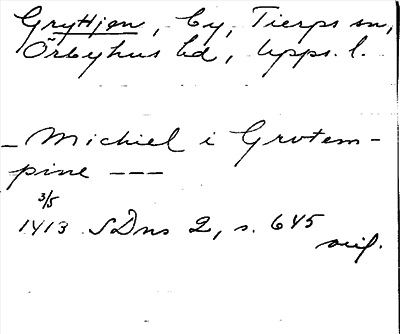 Gryttjen, by, Tierps sn,
Örbyhus hd, Upps. l.
_ Michiel i Grutem-
pine ---
3/5
1413 SDns 2, s. 645